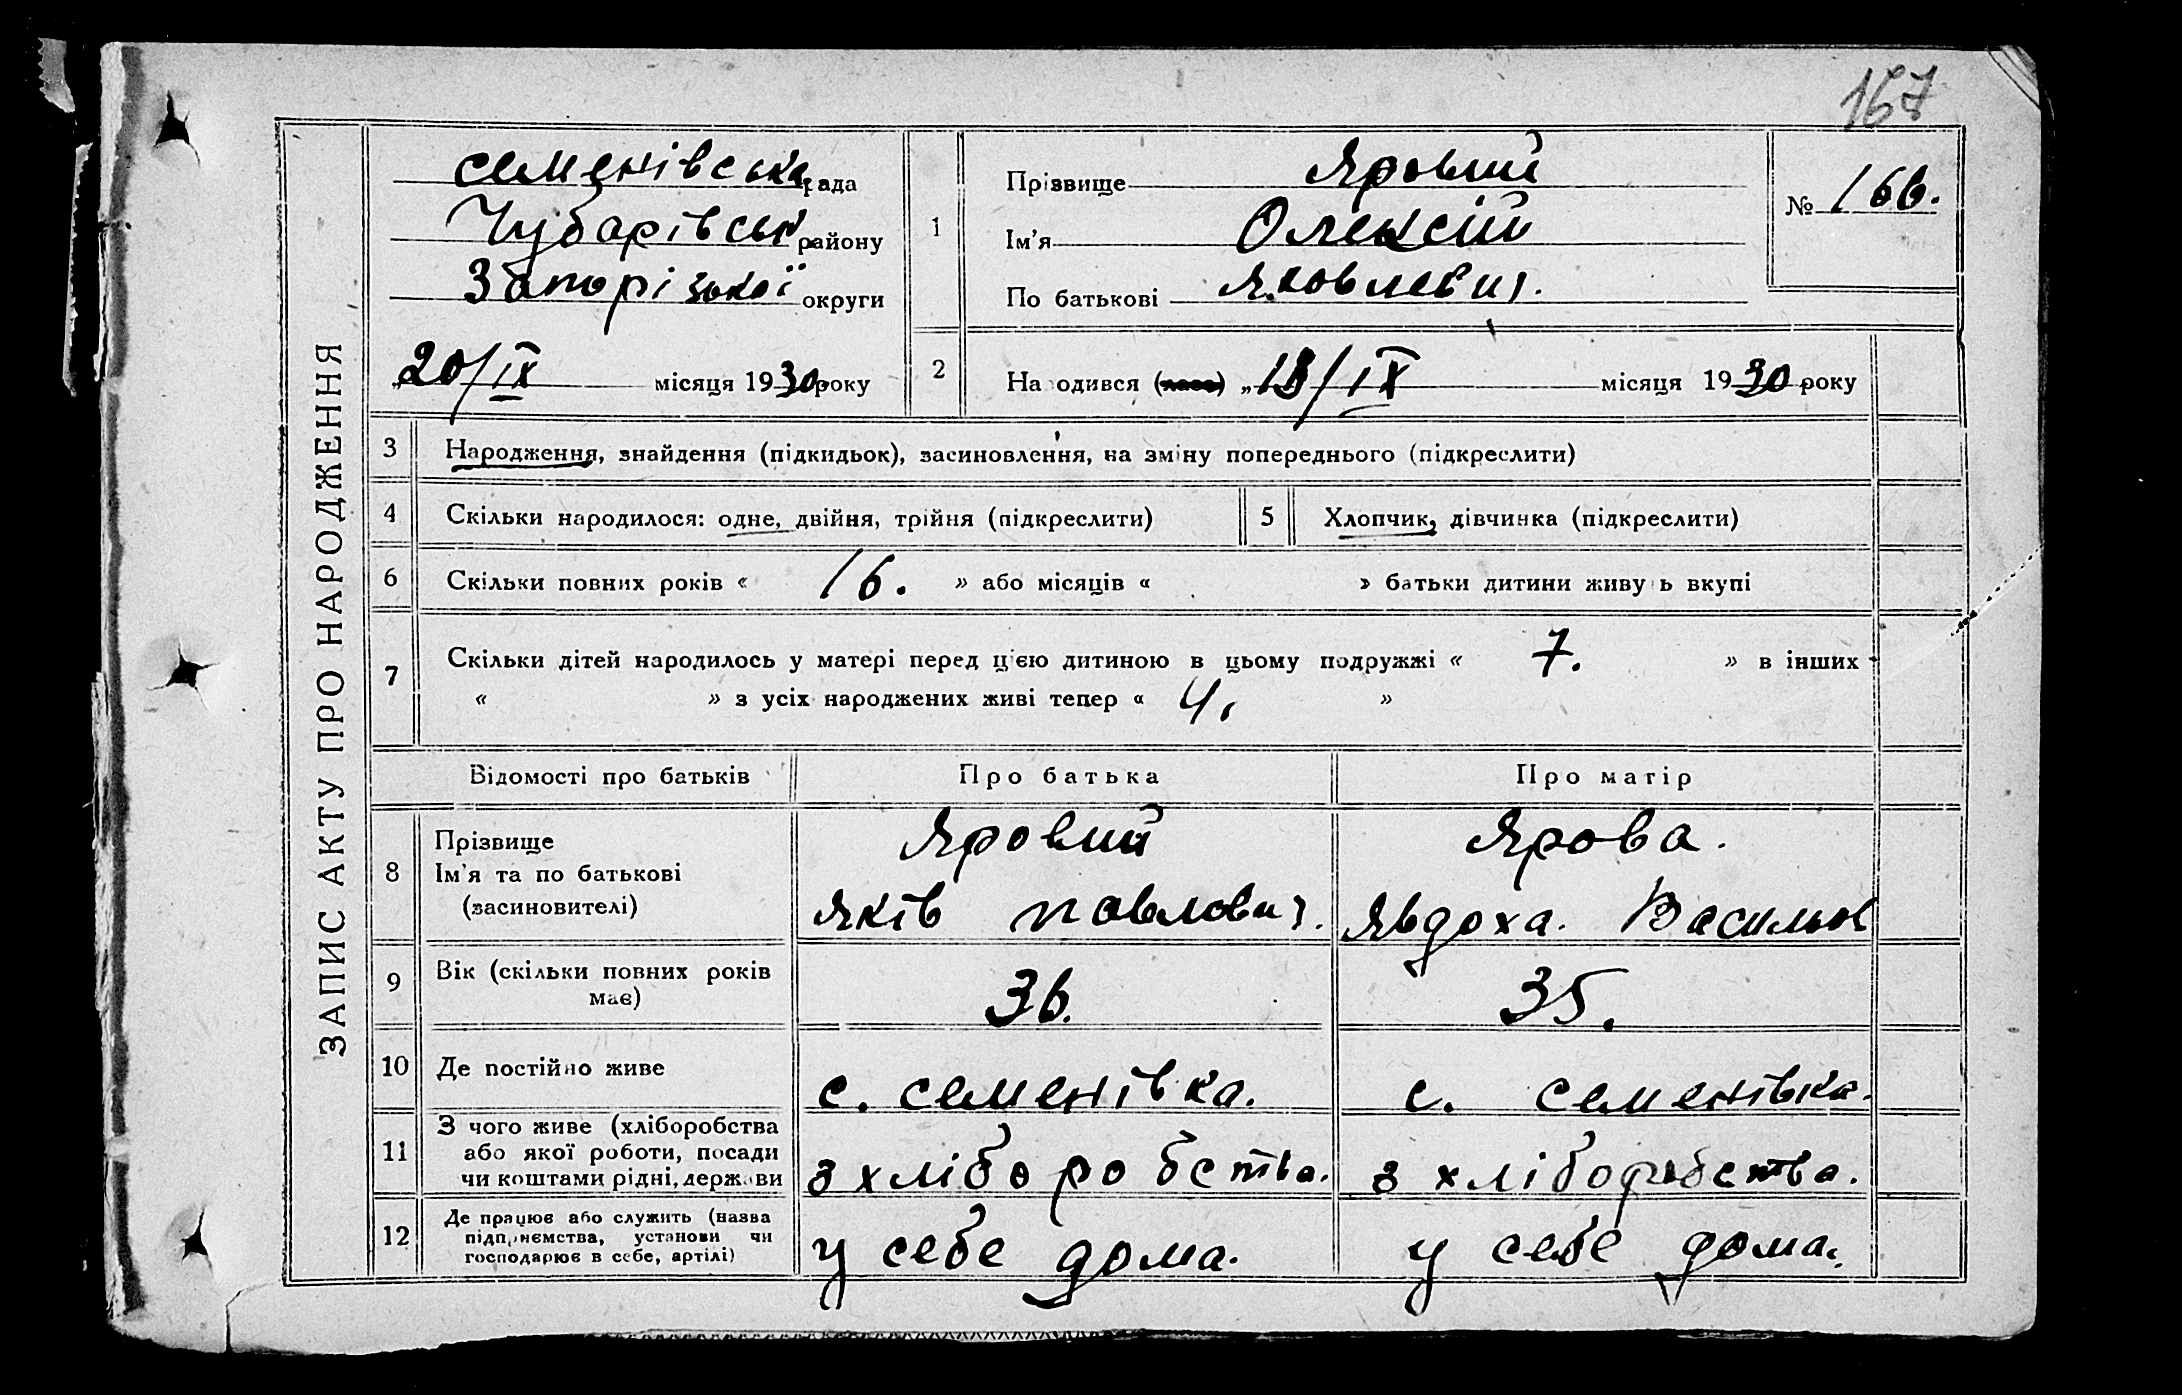 167
ЗАПИС АКТУ ПРО НАРОДЖЕННЯ
семенівська рада
Чубарівськ району
Запорізької округи
„20/IX місяця 1930 року
1
Прізвище Яровий
Ім'я Олексій
По батькові Яковлевич.
№ 166.
2 На одився ( ) „13/IX місяця 1930 року
3 Народження, знайдення (підкидьок), засиновлення, на зміну попереднього (підкреслити)
4 Скільки народилося: одне, двійня, трійня (підкреслити) 5 Хлопчик, дівчинка (підкреслити)
6 Скільки повних років « 16. » або місяців « » батьки дитини живу ь вкупі
7 Скільки дітей народилось у матері перед цією дитиною в цьому подружжі « 7. » в інших
« » з усіх народжених живі тепер « 4. »
Відомості про батьків Про батька Про матір
8 Прізвище Яровий Ярова.
Ім'я та по батькові
(засиновителі) Яків павлович. Явдоха. Васильов
9 Вік (скільки повних років
має) 36. 35.
10 Де постійно живе с. семенівка. с. семенівка.
11 З чого живе (хліборобства
або якої роботи, посади
чи коштами рідні, держави з хліборобства. з хліборобства.
12 Де працює або служить (назва
підприємства, установи чи
господарює в себе, артілі) у себе дома. у себе дома.